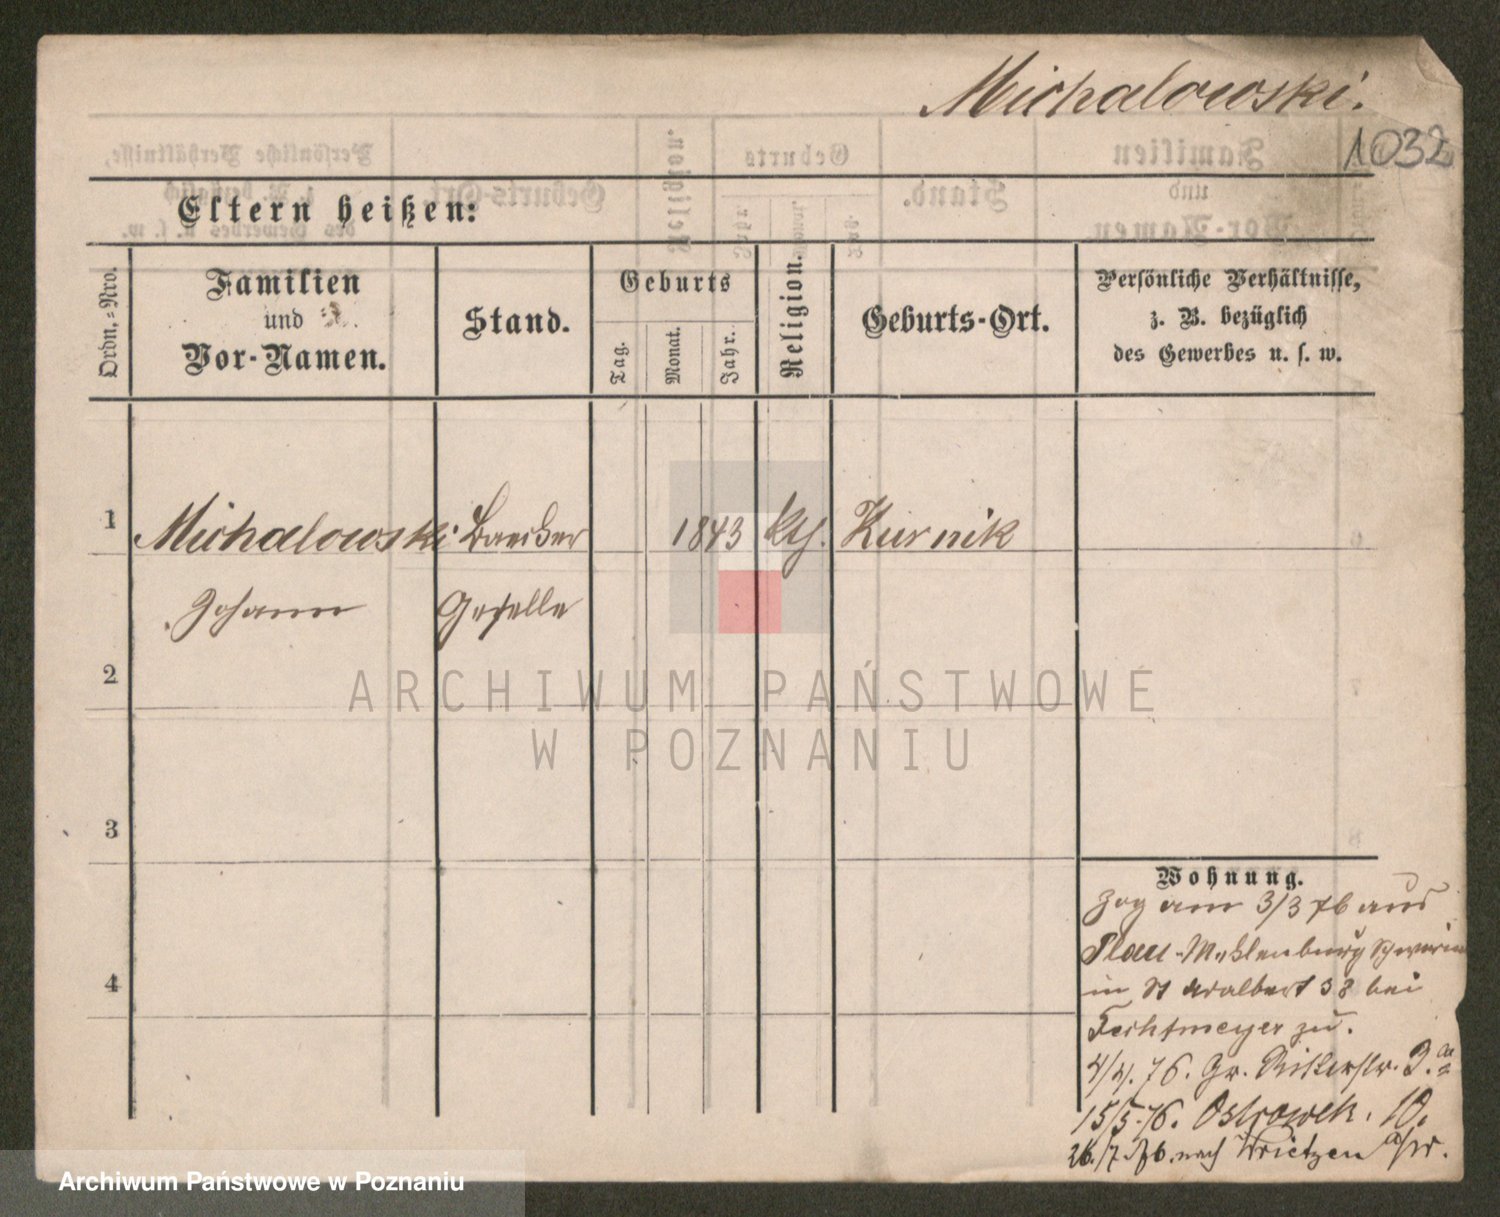 Michalowski.
1032
Eltern heißen:
Ordn.-Nro.
Familien
und
Vor-Namen.
Stand.
Geburts
Tag.
Monat.
Jahr.
Religion.
Geburts-Ort.
Persönliche Verhältnisse,
z. B. bezüglich
des Gewerbes u. s. w.
1 Michalowski Baecker 1843 kth. Kurnik
Johann Geselle
2
3
4
Wohnung.
Zog am 3/3 76 aus
Plau-Meklenburg Schwerin
in St Adalbert 38 bei
Fechtmeyer zu.
4/4. 76. Gr. Ritterstr. 3.
15/5.76. Ostrowek. 10.
26./7.76. nach Wrietzen a/W.
ARCHIWUM PAŃSTWOWE
W POZNANIU
Archiwum Państwowe w Poznaniu